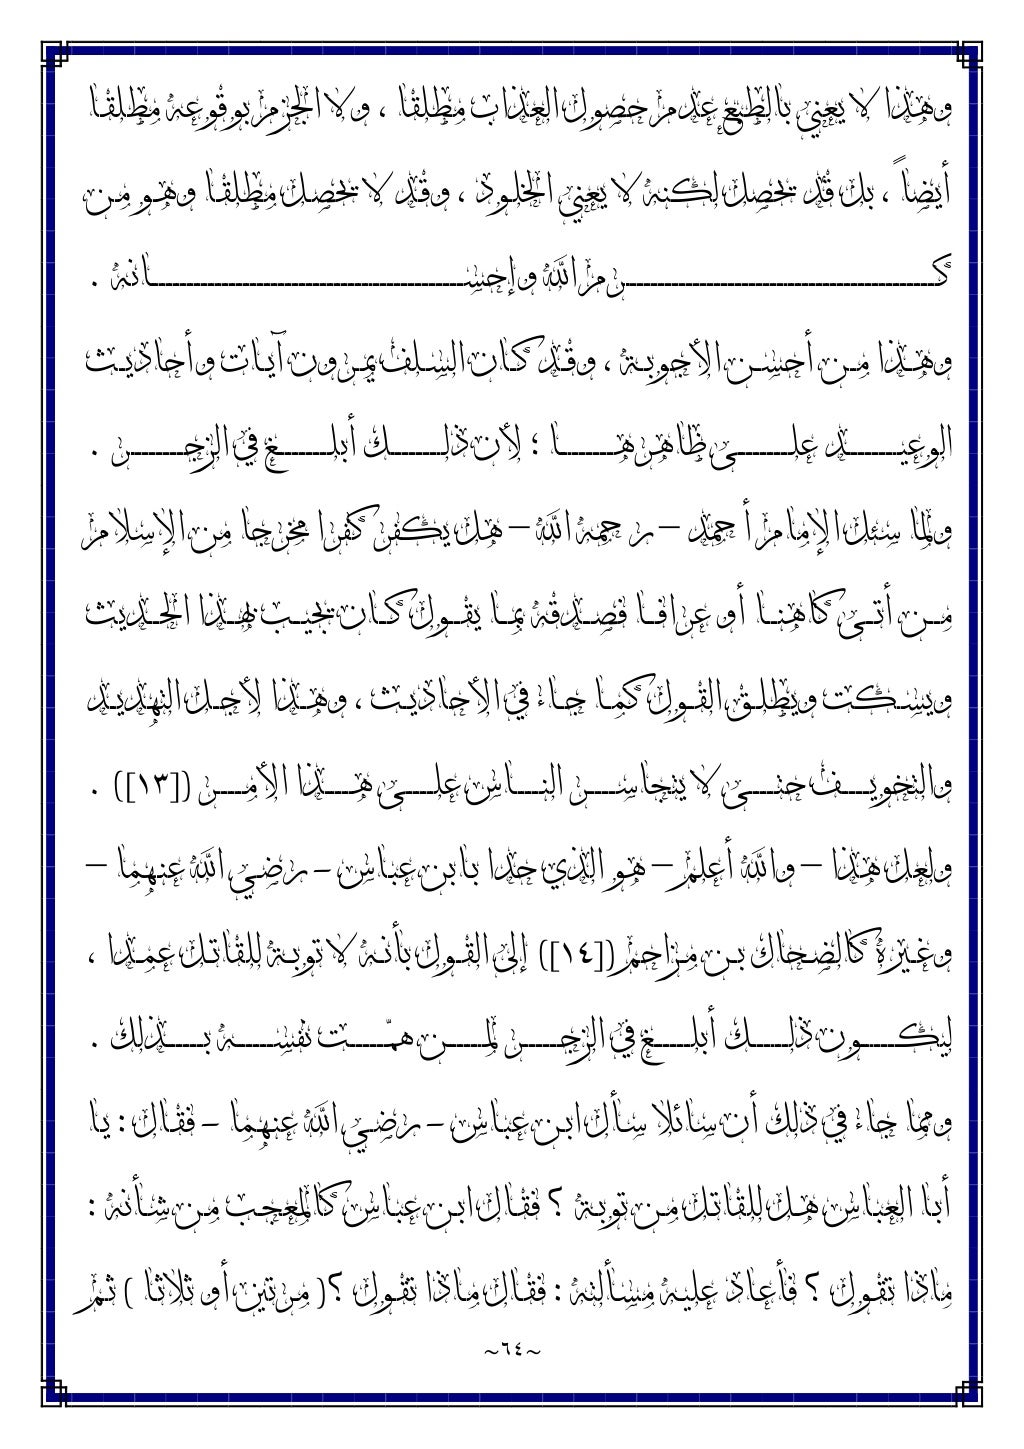 وهذا لا يعني بالطبع عدم حصول العذاب مطلقا ، ولا الجزم بوقوعه مطلقا
أيضاً ، بل قد تحصل لكنه لا يعني الخلود ، وقد لا تحصل مطلقا وهو من
كرم الله وإحسانه .
وهذا من أحسن الأجوبة ، وقد كان السلف يمرون آيات وأحاديث
الوعيد على ظاهرها ؛ لأن ذلك أبلغ في الزجر .
ولما سئل الإمام أحمد – رحمه الله – هل يكفر كفرا مخرجا من الإسلام
من أتى كاهنا أو عرافا فصدقه بما يقول كان تجيب بهذا الحديث
ويسكت ويطلق القول كما جاء في الأحاديث ، وهذا لأجل التهديد
والتخويف حتى لا يتجاسر الناس على هذا الأمر ([١٣]) .
ولعل هذا – والله أعلم – هو الذي حدا بابن عباس – رضي الله عنهما –
وغيره كالضحاك بن مزاحم ([١٤]) إلى القول بأنه لا توبة للقاتل عمدا ،
ليكون ذلك أبلغ في الزجر لمن همّت نفسه بذلك .
ومما جاء في ذلك أن سائلا سأل ابن عباس – رضي الله عنهما – فقال : يا
أبا العباس هل للقاتل من توبة ؟ فقال ابن عباس كالمعجب من شأنه :
ماذا تقول ؟ فأعاد عليه مسألته : فقال ماذا تقول ؟ ( مرتين أو ثلاثا ) ثم
~٦٤~